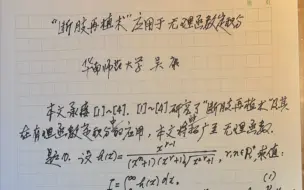 "断肢再植术"应用于无理函数定积分
华南师范大学 吴康
本文承接[1]~[4],[1]~[4]研究了"断肢再植术"及其
在有理函数定积分的应用,本文将推广至无理函数.
题10. 设 f(x)=
r,n∈N*,求值:
I=∫₀^∞ f(x)dx. (1)